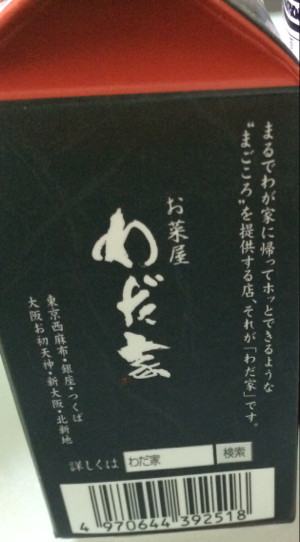 まるでわが家に帰ってホッとできるような
"まごころ"を提供する店、それが「わだ家」です。
お菜屋
わだ家
東京西麻布・銀座・つくば
大阪お初天神・新大阪・北新地
詳しくは わだ家 検索
4 970644 392518